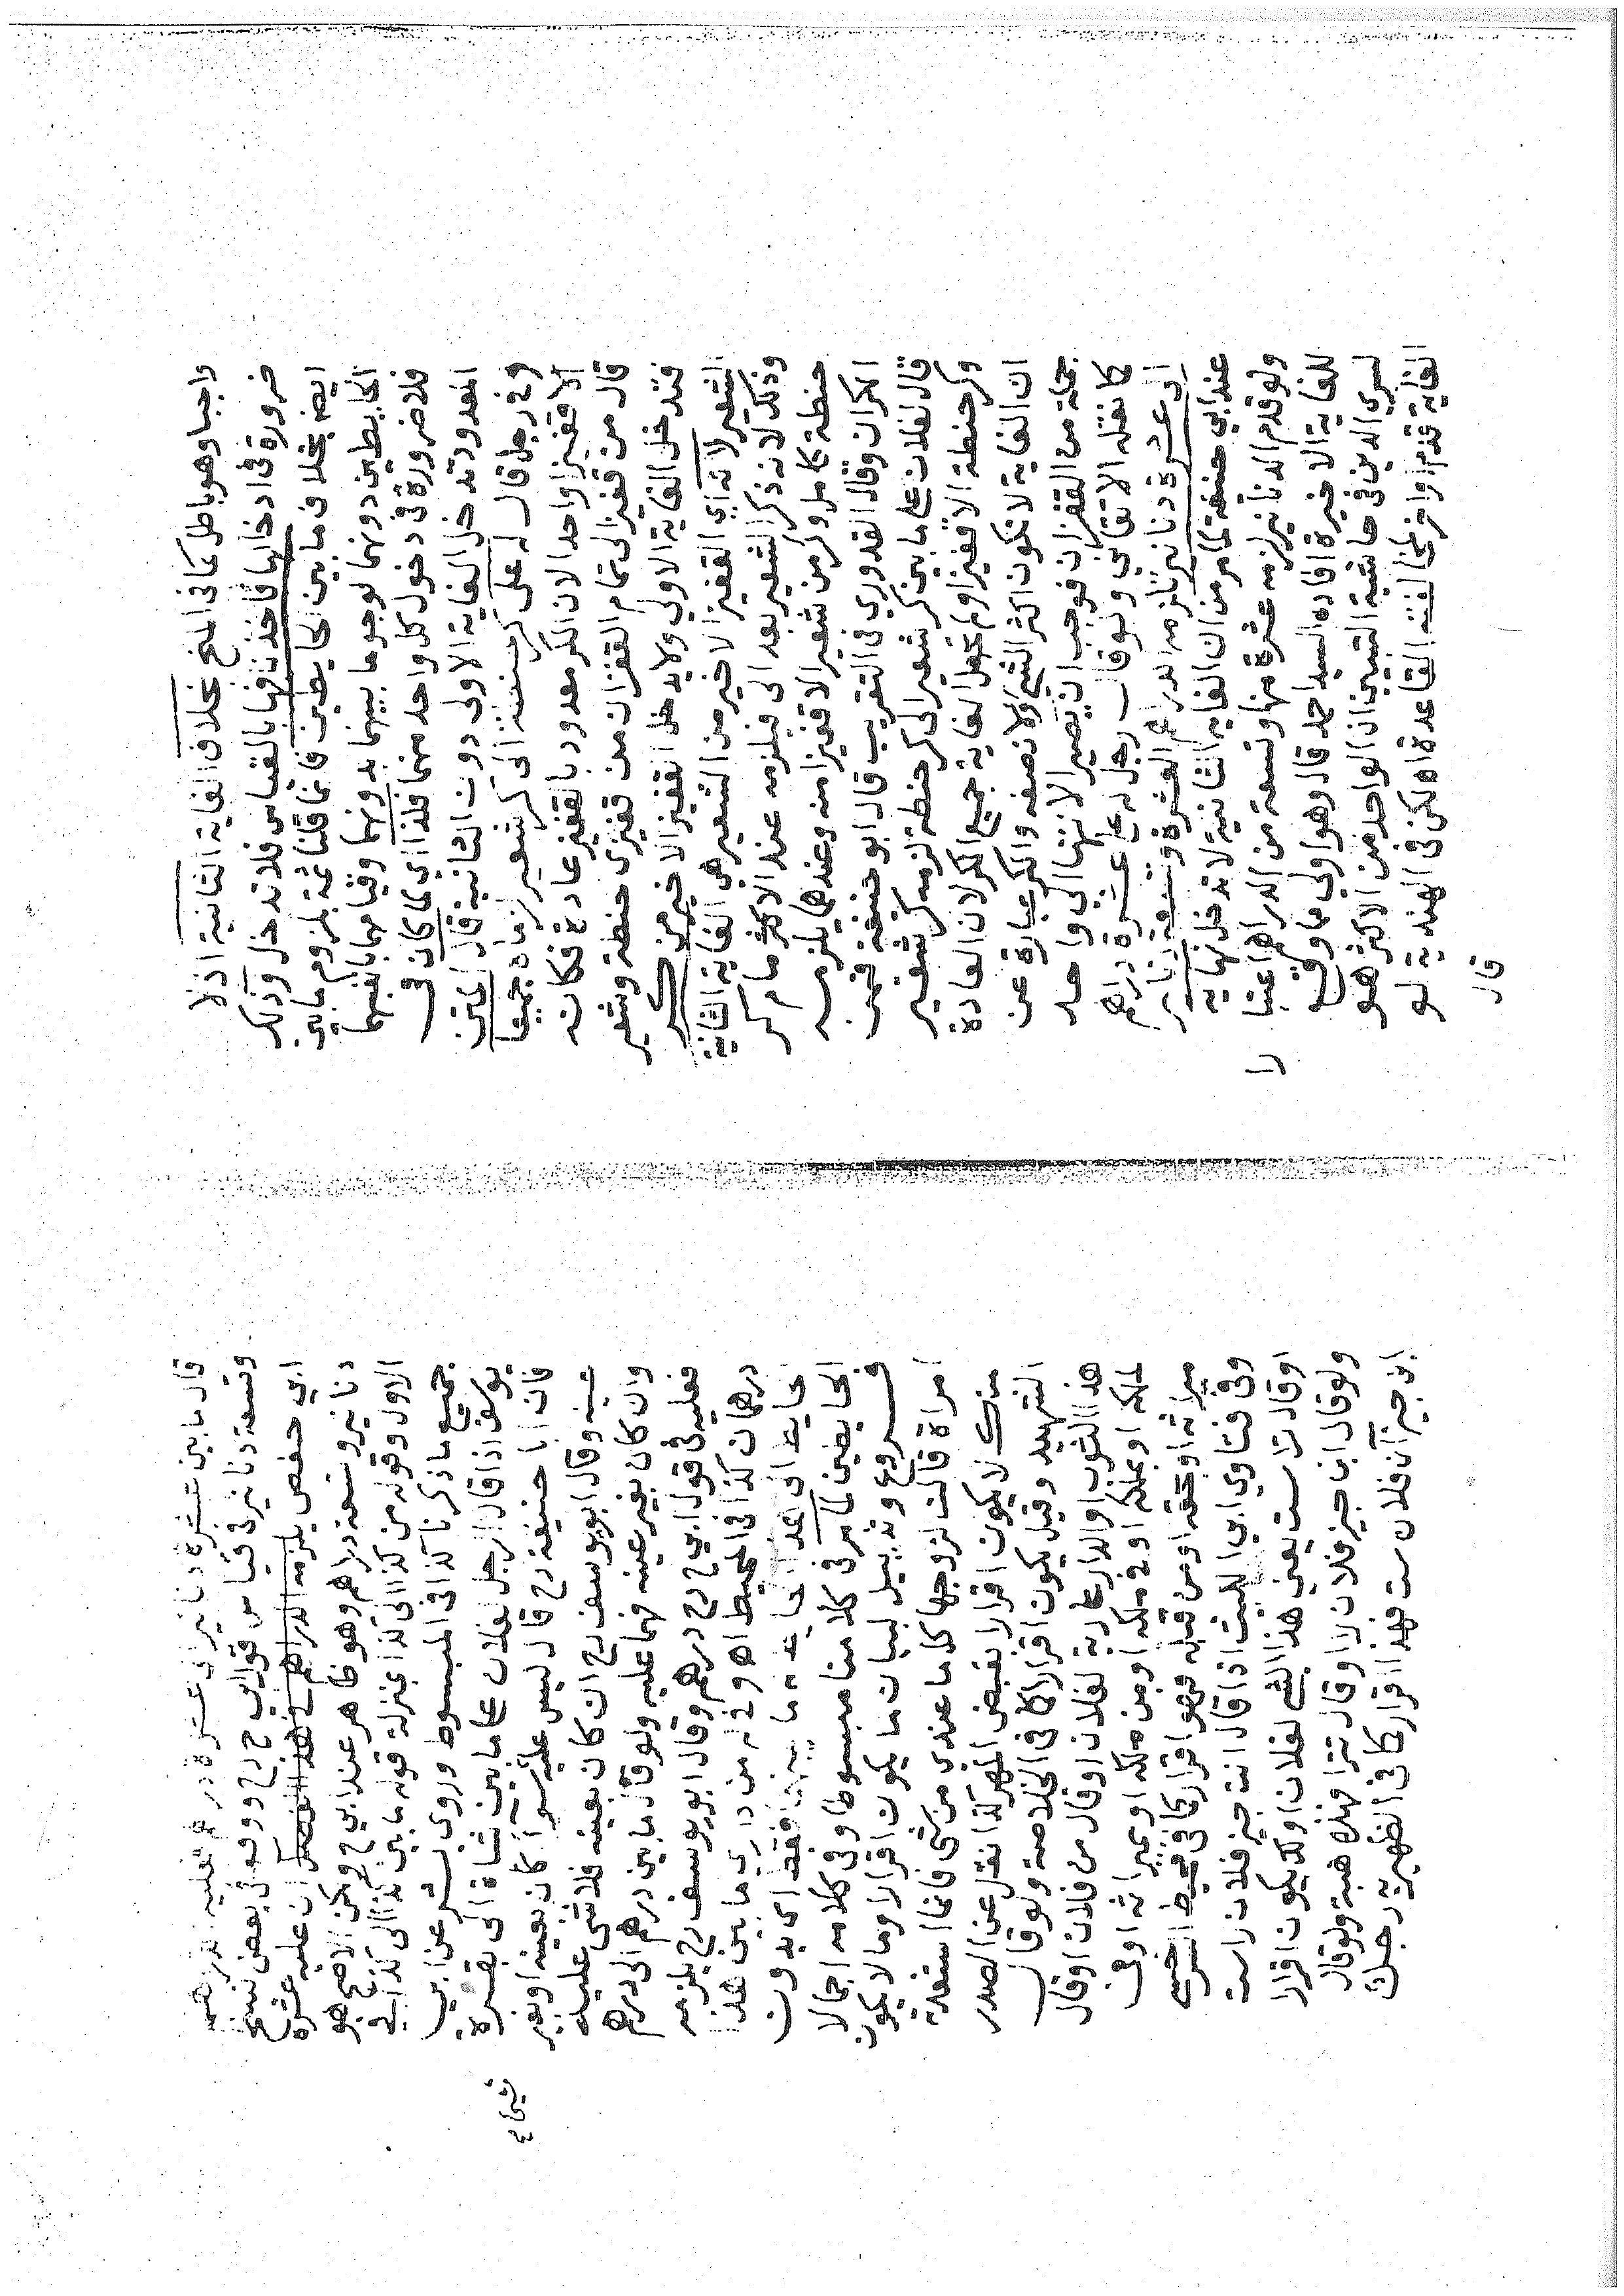 واجبا وهو باطل كما في المنح بخلاف الغاية الثانية اذ لا
ضرورة في ادخالها فاخذنا فيها بالقياس فلا تدخل وذلك
ايضا بخلاف ما بين الحايطين فانما قلنا ثمة بلزوم ما بين
الحايطين دونهما لوجود ما بينهما بدونهما وقيامهما بانفسهما
فلا ضرورة في دخول كل واحد منهما فلذا اي لما كان في
المعدود تدخل الغاية الاولى دون الثانية قال المتن
وفي رجل قال له على كر حنطة الى كر شعير لزماه جميعا
الا قفيزا واحدا لان الكر معدود بالقفيز عادة فكانه
قال من قفيز الى تمام القفزان من قفيزى حنطة وشعير
فتدخل الغاية الاولى ولا يدخل القفيز الاخير من كر
الشعير لانه اي القفيز الاخير من الشعير هي الغاية الثانية
وذلك لانه ذكر الشعير بعد الى فيلزمه عند الاكثر ما مر كر
حنطة كامل وكر من شعير الا قفيزا منه وعندهما يلزمه
الكران وقال القدوري في التقريب قال ابو حنيفة فيمن
قال لفلان على ما بين كر شعير الى كر حنطة لزمه كر شعير
وكر حنطة الا قفيزا ولم تجعل الغاية جميع الكر لان العادة
ان الغاية لا تكون اكثر الشيء ولا نصفه والكر عبارة عن
جملة من القفزان فوجب ان يصير الانتها الى واحد
كما نقله الاتقاني ولو قال رجل له على عشرة دراهم
الى عشرة دنانير تلزمه الدراهم العشرة وتسعة دنانير
عند ابي حنيفة لما مر من ان الغاية الثانية لا تدخل نهاية
ولو قدم الدنانير لزمه عشرة منها وتسعة من الدراهم اعتبا
را
للغاية الاخيرة افاده السيد احمد قال وهو اولى مما وقع
لسري الدين في حاشية التبيين ان الواحد من الاكثر هو
الغاية قدم او اخر لمخالفته القاعدة اه لكن في الهندية لو
قال
قال ما بين عشرة دنانير الى عشرة دراهم فعليه الدراهم
وتسعة دنانير في قياس قول ابي ح رح ووقع في بعض نسخ
ابي حفص يلزمه الدراهم في هذا الفصل ان عليه عشرة
دنانير وتسعة دراهم وهو ظاهر عند ابي ح ولكن الاصح هو
الاول وقوله من كذا الى كذا بمنزلة قوله ما بين كذا الى كذا في
جميع ما ذكرنا كذا في المبسوط وروى بشر عن ابي
يوسف اذا قال الرجل لفلان على ما بين شاة الى بقرة
فان ابا حنيفة رح قال ليس عليه شيء سوآ كان بعينه او بغير
عينه وقال ابو يوسف رح ان كان بعينه فلا شى عليه
وان كان بغير عينه فهما عليه ولو قال ما بين درهم الى درهم
فعليه في قول ابي ح رح درهم وقال ابو يوسف رح يلزمه
درهمان كذا في المحيط اه وفي له من داري ما بين هذا
الحايط الى هذا الحايط له ما بينهما فقط اى بدون
الحايطين لما مر في كلامنا مبسوطا وفي كلامه اجمالا
فروع وتذييل لبيان ما يكون اقرارا وما لا يكون
امراة قالت لزوجها كلما عندي من شى فانما استفدته
منك لا يكون اقرارا بقبض المهر كذا نقل عن الصدر
الشهيد وقيل يكون اقرارا كما في الخلاصة ولو قال
هذا الثوب او الدار عارية لفلان او قال من فلان او قال
لملكه او بملكه او في ملكه او من ملكه او بميراثه او في
ميراثه او بحقه او من قبله فهو اقرار كما في محيط السرخسي
وفي فتاوي ابي الليث اذا قال انت جيز فلان راست
او قال تراست يعني هذا الشيء لفلان او لك يكون اقرارا
ولو قال اين جيز فلان را او قال ترا فهذه هبة ولو قال
اين جيز آن فلان ست فهذا اقرار كما في الظهيرية رجل